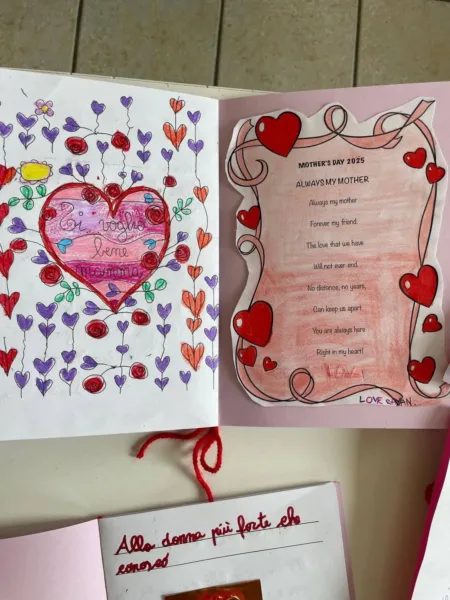 Ti voglio
bene
mamma
MOTHER'S DAY 2025
ALWAYS MY MOTHER
Always my mother
Forever my friend.
The love that we have
Will not ever end.
No distance, no years,
Can keep us apart.
You are always here
Right in my heart!
LOVE
Alla donna più forte che
conosco